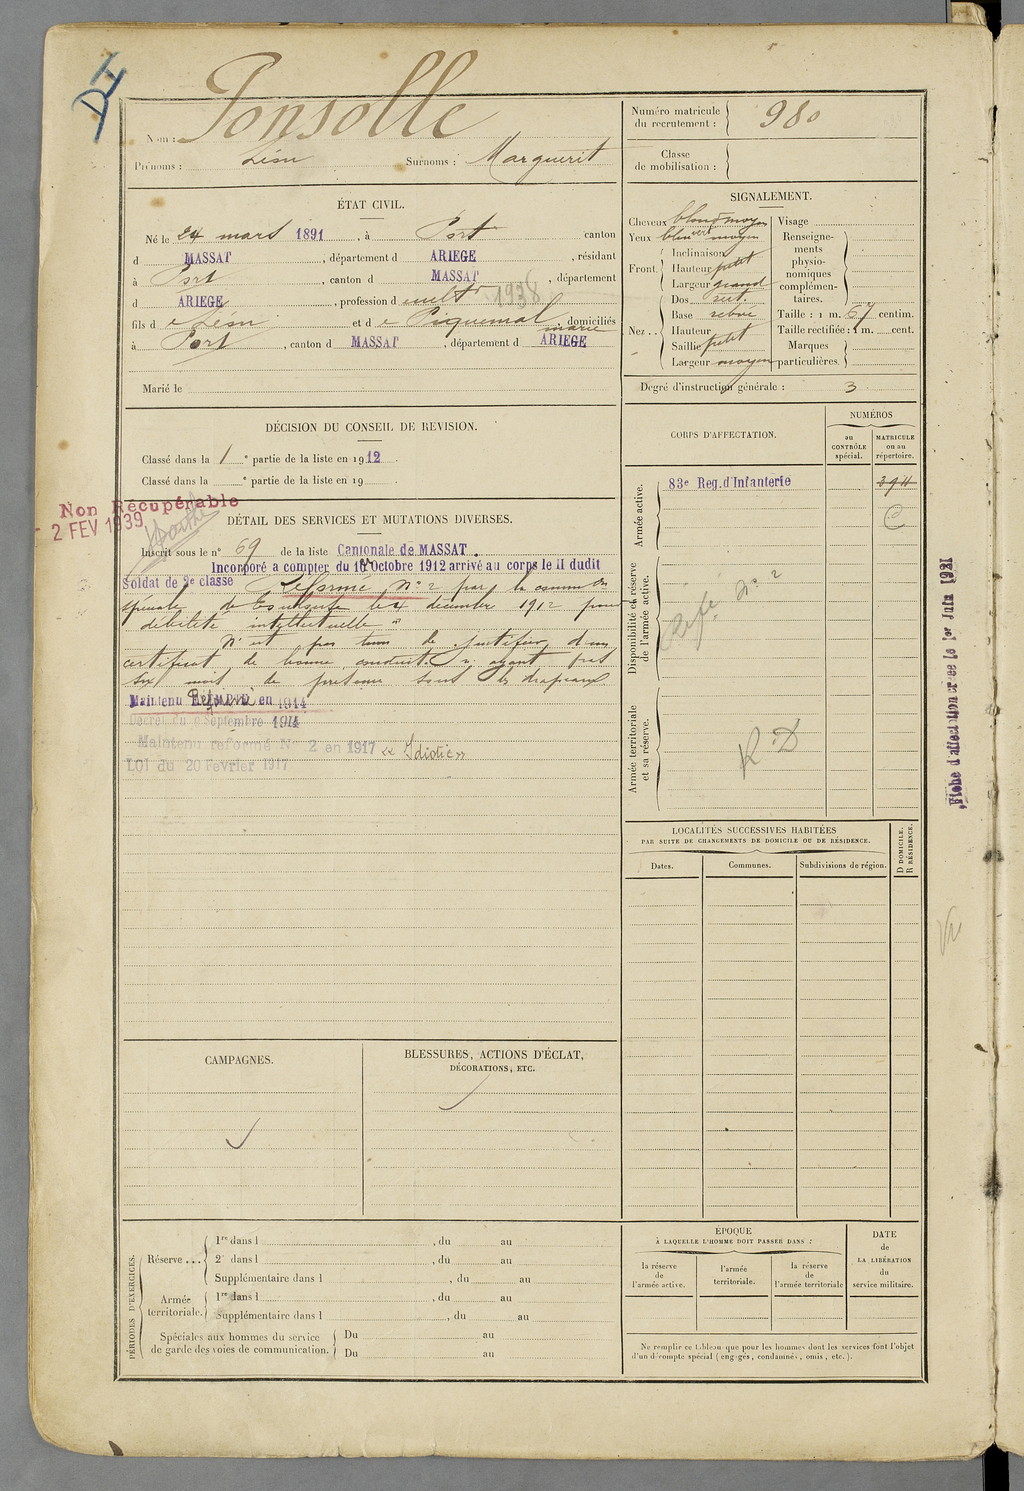 Ponsolle
Nom :
Prénoms : Léon Surnoms : Marguerit
Numéro matricule du recrutement : 980
Classe de mobilisation :
ÉTAT CIVIL.
Né le 24 mars 1891, à Port canton
d MASSAT, département d ARIEGE, résidant
à Port, canton d MASSAT, département
d ARIEGE, profession d cult^r 1938
fils d e Léon et d e Piquemal marie domiciliés
à Port, canton d MASSAT, département d ARIEGE
Marié le
SIGNALEMENT.
Cheveux blond moyen
Yeux bleu vert moyen
Front. Inclinaison
Hauteur petit
Largeur grand
Nez.. Dos rect.
Base
Hauteur
Saillie petit
Largeur moyen
Visage
Renseignements physionomiques complémentaires.
Taille : 1 m. 67 centim.
Taille rectifiée : 1 m. cent.
Marques particulières.
Degré d'instruction générale : 3
DÉCISION DU CONSEIL DE REVISION.
Classé dans la 1 e partie de la liste en 1912.
Classé dans la e partie de la liste en 19 .
Non Récupérable
2 FEV 1939
DÉTAIL DES SERVICES ET MUTATIONS DIVERSES.
Inscrit sous le n° 69 de la liste Cantonale de MASSAT.
Incorporé a compter du 10 Octobre 1912 arrivé au corps le 11 dudit
Soldat de 2e classe Réformé N° 2 par la comm on
spéciale de le 4 décembre 1912 pour
débilité intellectuelle.
N'est pas tenu de justifier d'un
certificat de bonne conduite n'ayant pas
six mois de présence sous les drapeaux.
Maintenu Réformé en 1914
Décret du 9 Septembre 1914
Maintenu réformé N° 2 en 1917 « Idiotie »
LOI du 20 Février 1917
CORPS D'AFFECTATION.
NUMÉROS
au CONTRÔLE spécial.
MATRICULE ou au répertoire.
Armée active.
83e Reg. d'Infanterie
Disponibilité et réserve de l'armée active.
Réfé n° 2
Armée territoriale et sa réserve.
R.D
Fiche d'affectation créée le 1er Juin 1921
LOCALITÉS SUCCESSIVES HABITÉES
PAR SUITE DE CHANGEMENTS DE DOMICILE OU DE RÉSIDENCE.
Dates.
Communes.
Subdivisions de région.
D DOMICILE.
R RÉSIDENCE.
CAMPAGNES.
BLESSURES, ACTIONS D'ÉCLAT,
DÉCORATIONS, ETC.
PÉRIODES D'EXERCICES.
Réserve ... 1re dans l , du au
2e dans l , du au
Supplémentaire dans l , du au
Armée territoriale. 1re dans l , du au
Supplémentaire dans l , du au
Spéciales aux hommes du service de garde des voies de communication. Du au
Du au
ÉPOQUE
À LAQUELLE L'HOMME DOIT PASSER DANS :
la réserve de l'armée active.
l'armée territoriale.
la réserve de l'armée territoriale
DATE de LA LIBÉRATION du service militaire.
Ne remplir ce tableau que pour les hommes dont les services font l'objet
d'un décompte spécial (engagés, condamnés, omis, etc.).